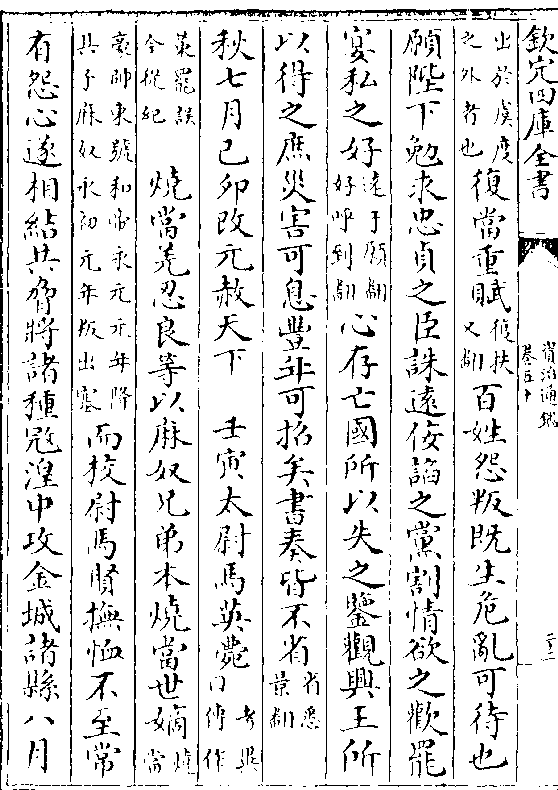 欽定四庫全書
資治通鑑
卷五十
出於虞度
之外者也
復當重賦
復扶
又翻
百姓怨叛既生危亂可待也
願陛下勉求忠貞之臣誅遠佞諂之黨割情欲之歡罷
宴私之好
遠于願翻
好呼到翻
心存亡國所以失之鑒觀興王所
以得之庶災害可息豐年可招矣書奏皆不省
省悉
景翻
秋七月己卯改元赦天下　壬寅太尉馬英薨
考異
曰傳作
英罷誤
今從紀
燒當羌忍良等以麻奴兄弟本燒當世嫡
燒
當
豪帥東號和帝永元元年降
其子麻奴永初元年叛出塞
而校尉馬賢撫恤不至常
有怨心遂相結共脅將諸種寇湟中攻金城諸縣八月